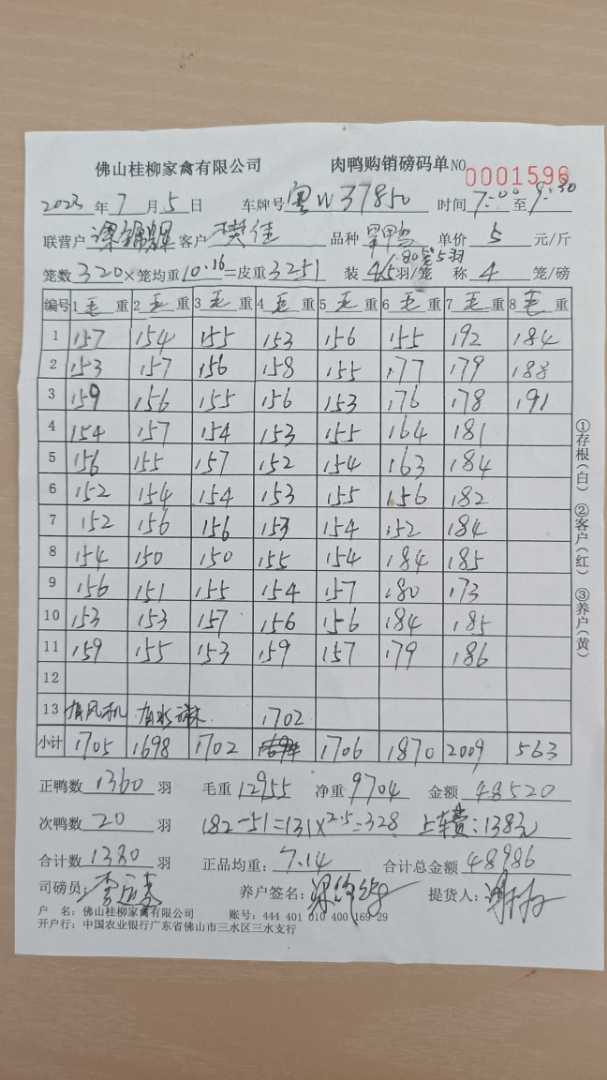 佛山桂柳家禽有限公司 肉鸭购销磅码单 NO 0001596
2023 年 7 月 5 日 车牌号 粤W37850 时间 7:00 至 9:30
联营户 客户 樊佳 品种 单价 5 元/斤
80笼5羽
笼数 320 ×笼均重 10.16 =皮重 3251 装 4.5 羽/笼 称 4 笼/磅
编号 1 毛 重 2 毛 重 3 毛 重 4 毛 重 5 毛 重 6 毛 重 7 毛 重 8 毛 重
1 157 154 155 153 156 155 192 184
2 153 157 156 158 155 177 179 188
3 159 156 155 156 153 176 178 191
4 154 157 154 153 155 164 181
5 156 155 157 152 154 163 184
6 152 154 154 153 155 156 182
7 152 156 156 153 154 152 184
8 154 150 150 155 154 184 185
9 156 151 155 154 157 180 173
10 153 153 157 156 156 184 185
11 159 155 153 159 157 179 186
12
13 有风机 有水淋 1702
小计 1705 1698 1702 1706 1870 2009 563
正鸭数 1360 羽 毛重 12955 净重 9704 金额 48520
次鸭数 20 羽 182-51=131×2.5=328 上车费:138元
合计数 1380 羽 正品均重: 7.14 合计总金额 48986
司磅员: 养户签名: 提货人:
户 名: 佛山桂柳家禽有限公司 账号: 444 401 010 400 169 29
开户行: 中国农业银行广东省佛山市三水区三水支行
①存根(白) ②客户(红) ③养户(黄)